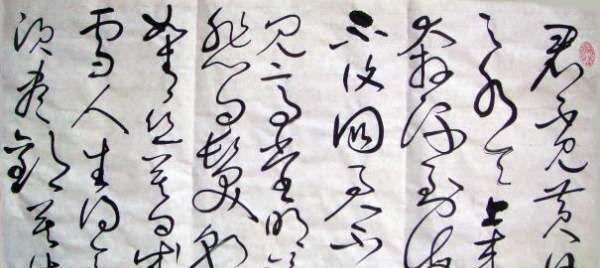 君不见黄河
之水天上来
奔流到海
不復回君不
见高堂明鏡
悲白髮朝
如青丝暮成
雪人生得
须尽歡莫使